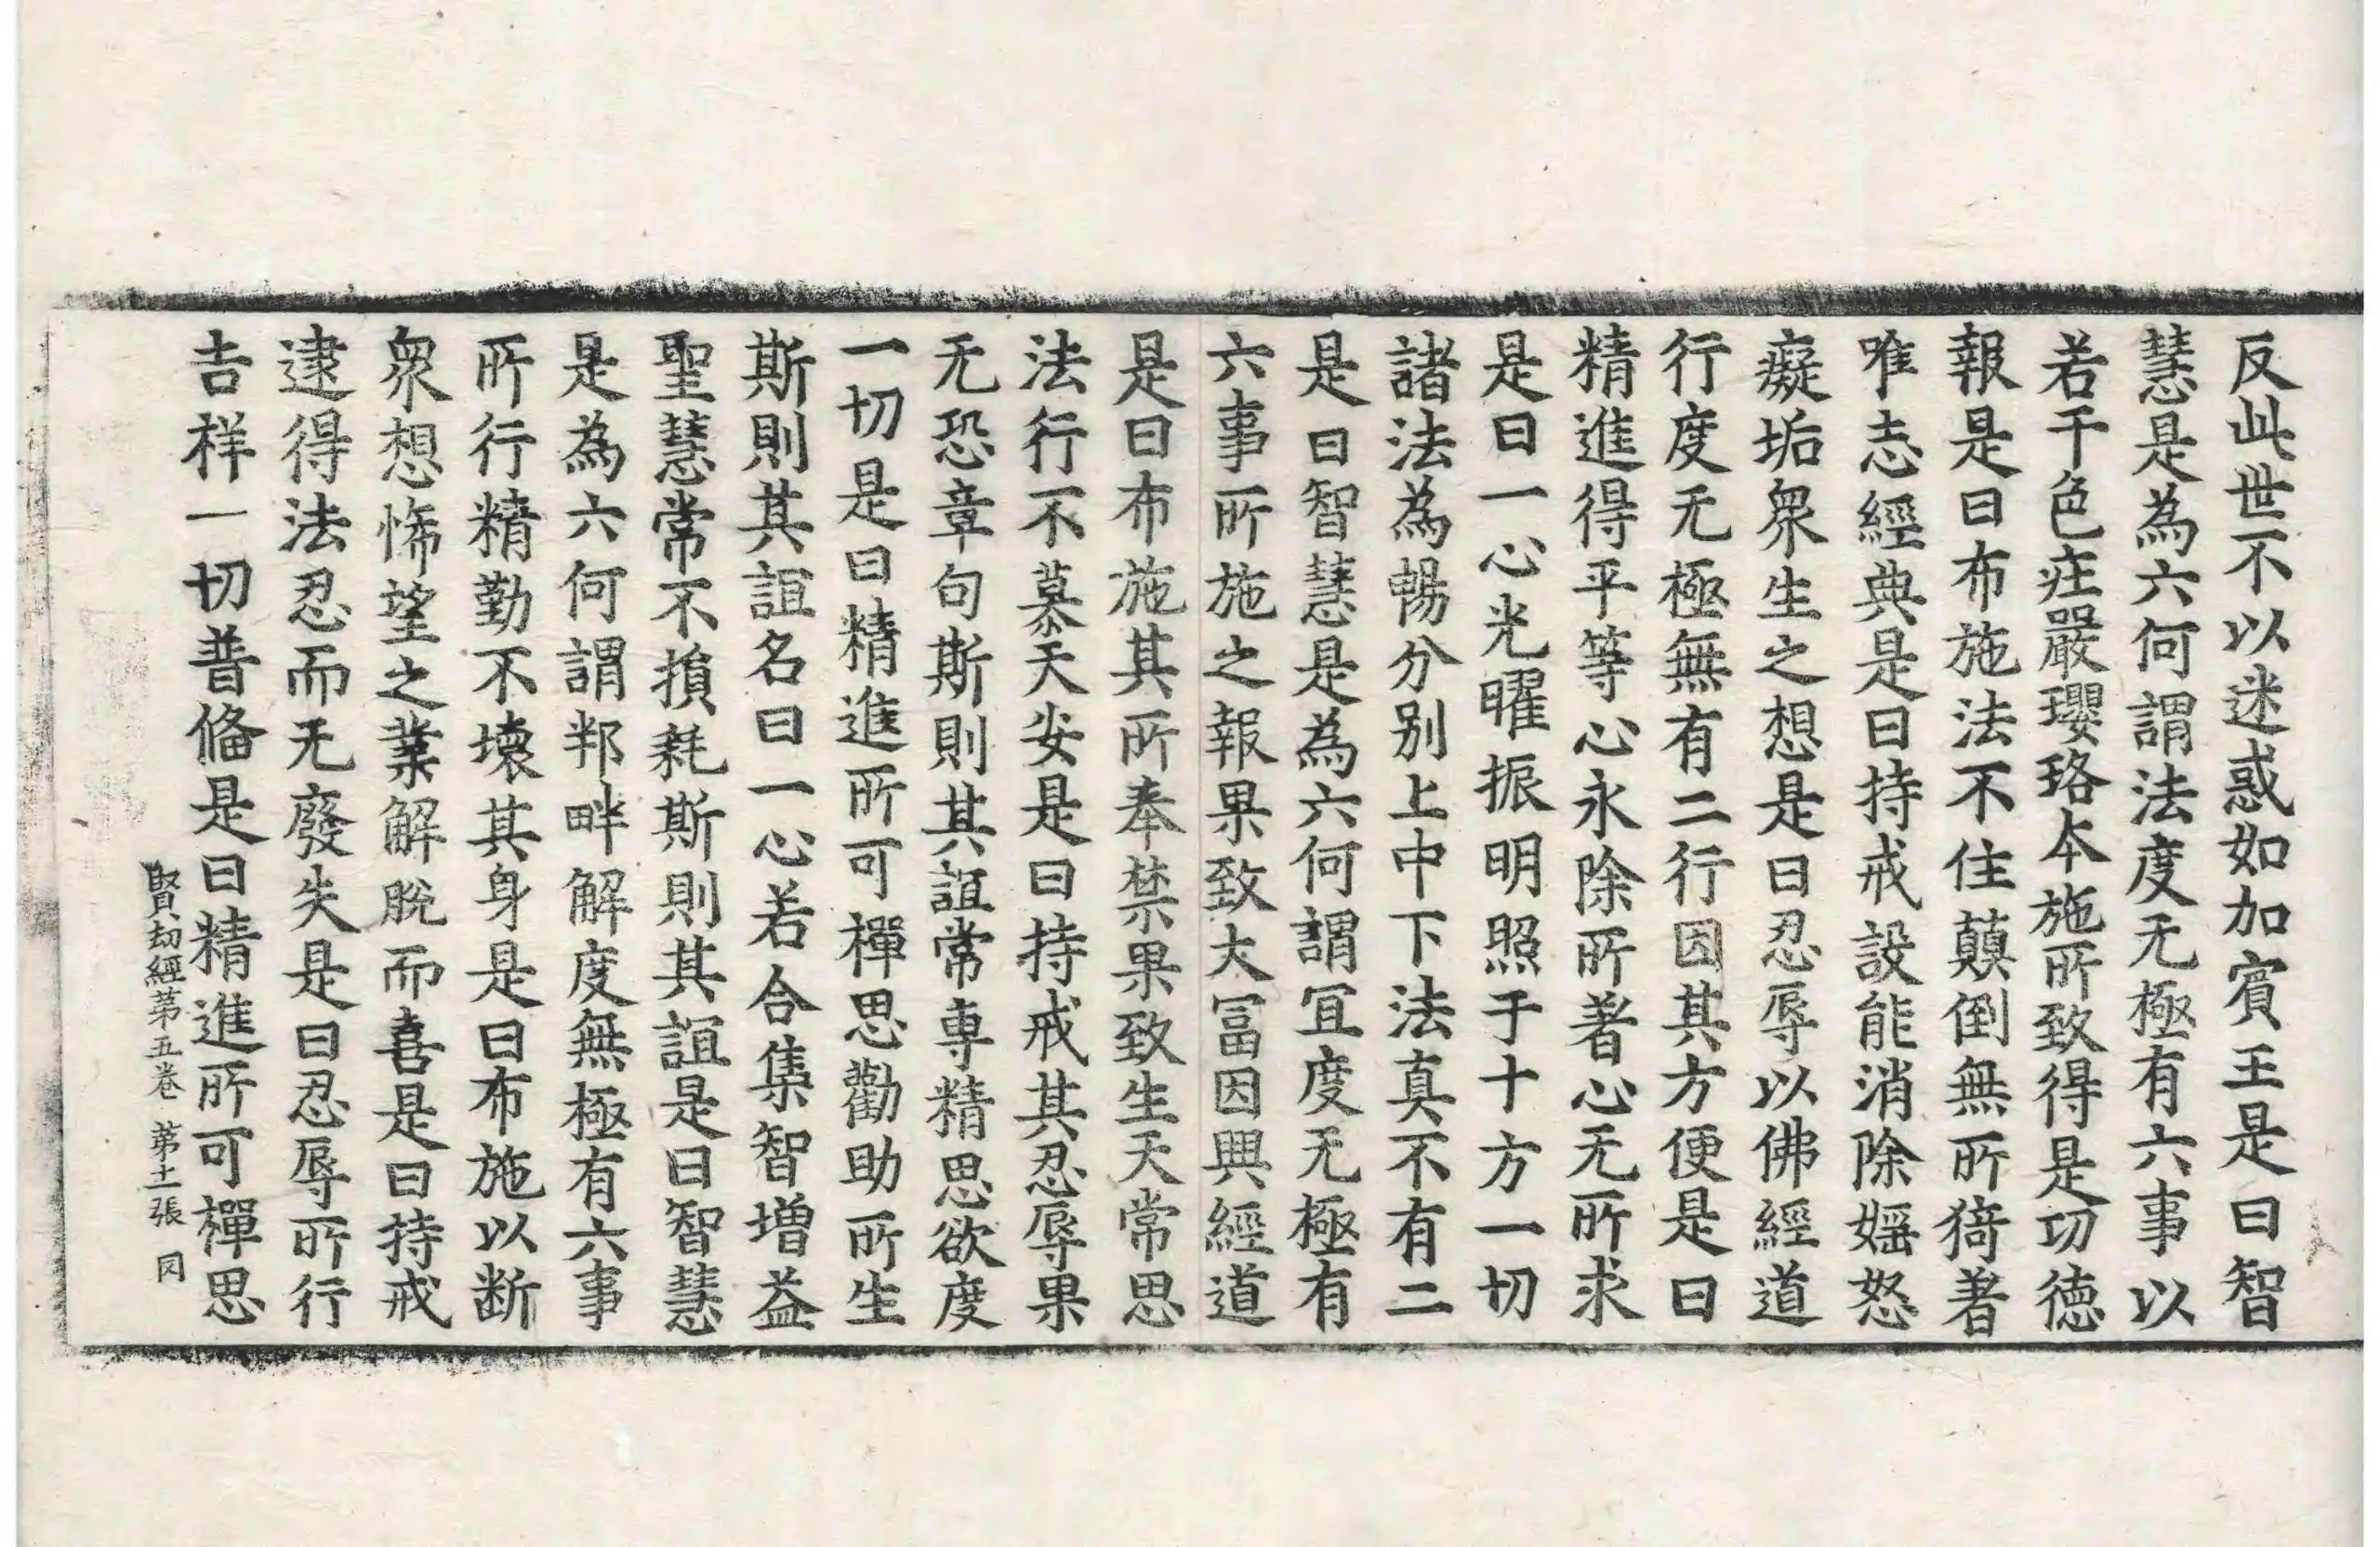 反此世不以迷惑如加賓王是曰智
慧是為六何謂法度无極有六事以
若干色疰嚴瓔珞本施所致得是功德
報是曰布施法不住蘱倒無所猗著
唯志經典是曰持戒設能消除婬怒
癡垢衆生之想是曰忍辱以佛經道
行度无極無有二行因其方便是曰
精進得平等心永除所著心无所求
是曰一心光曜振明照于十方一切
諸法為暢分别上中下法真不有二
是曰智慧是為六何謂宜度无極有
六事所施之報果致大冨因興經道
是曰布施其所奉禁果致生天常思
法行不慕天安是曰持戒其忍辱果
无恐章句斯則其誼常専精思欲度
一切是曰精進所可禪思勸助所生
斯則其誼名曰一心若合集智増益
聖慧常不損耗斯則其誼是曰智慧
是為六何謂邦畔解度無極有六事
所行精勤不壞其身是曰布施以断
衆想悕望之業解脫而喜是曰持戒
逮得法忍而无廢失是曰忍辱所行
吉祥一切普俻是曰精進所可禪思
賢劫經第五卷 第十一張 同